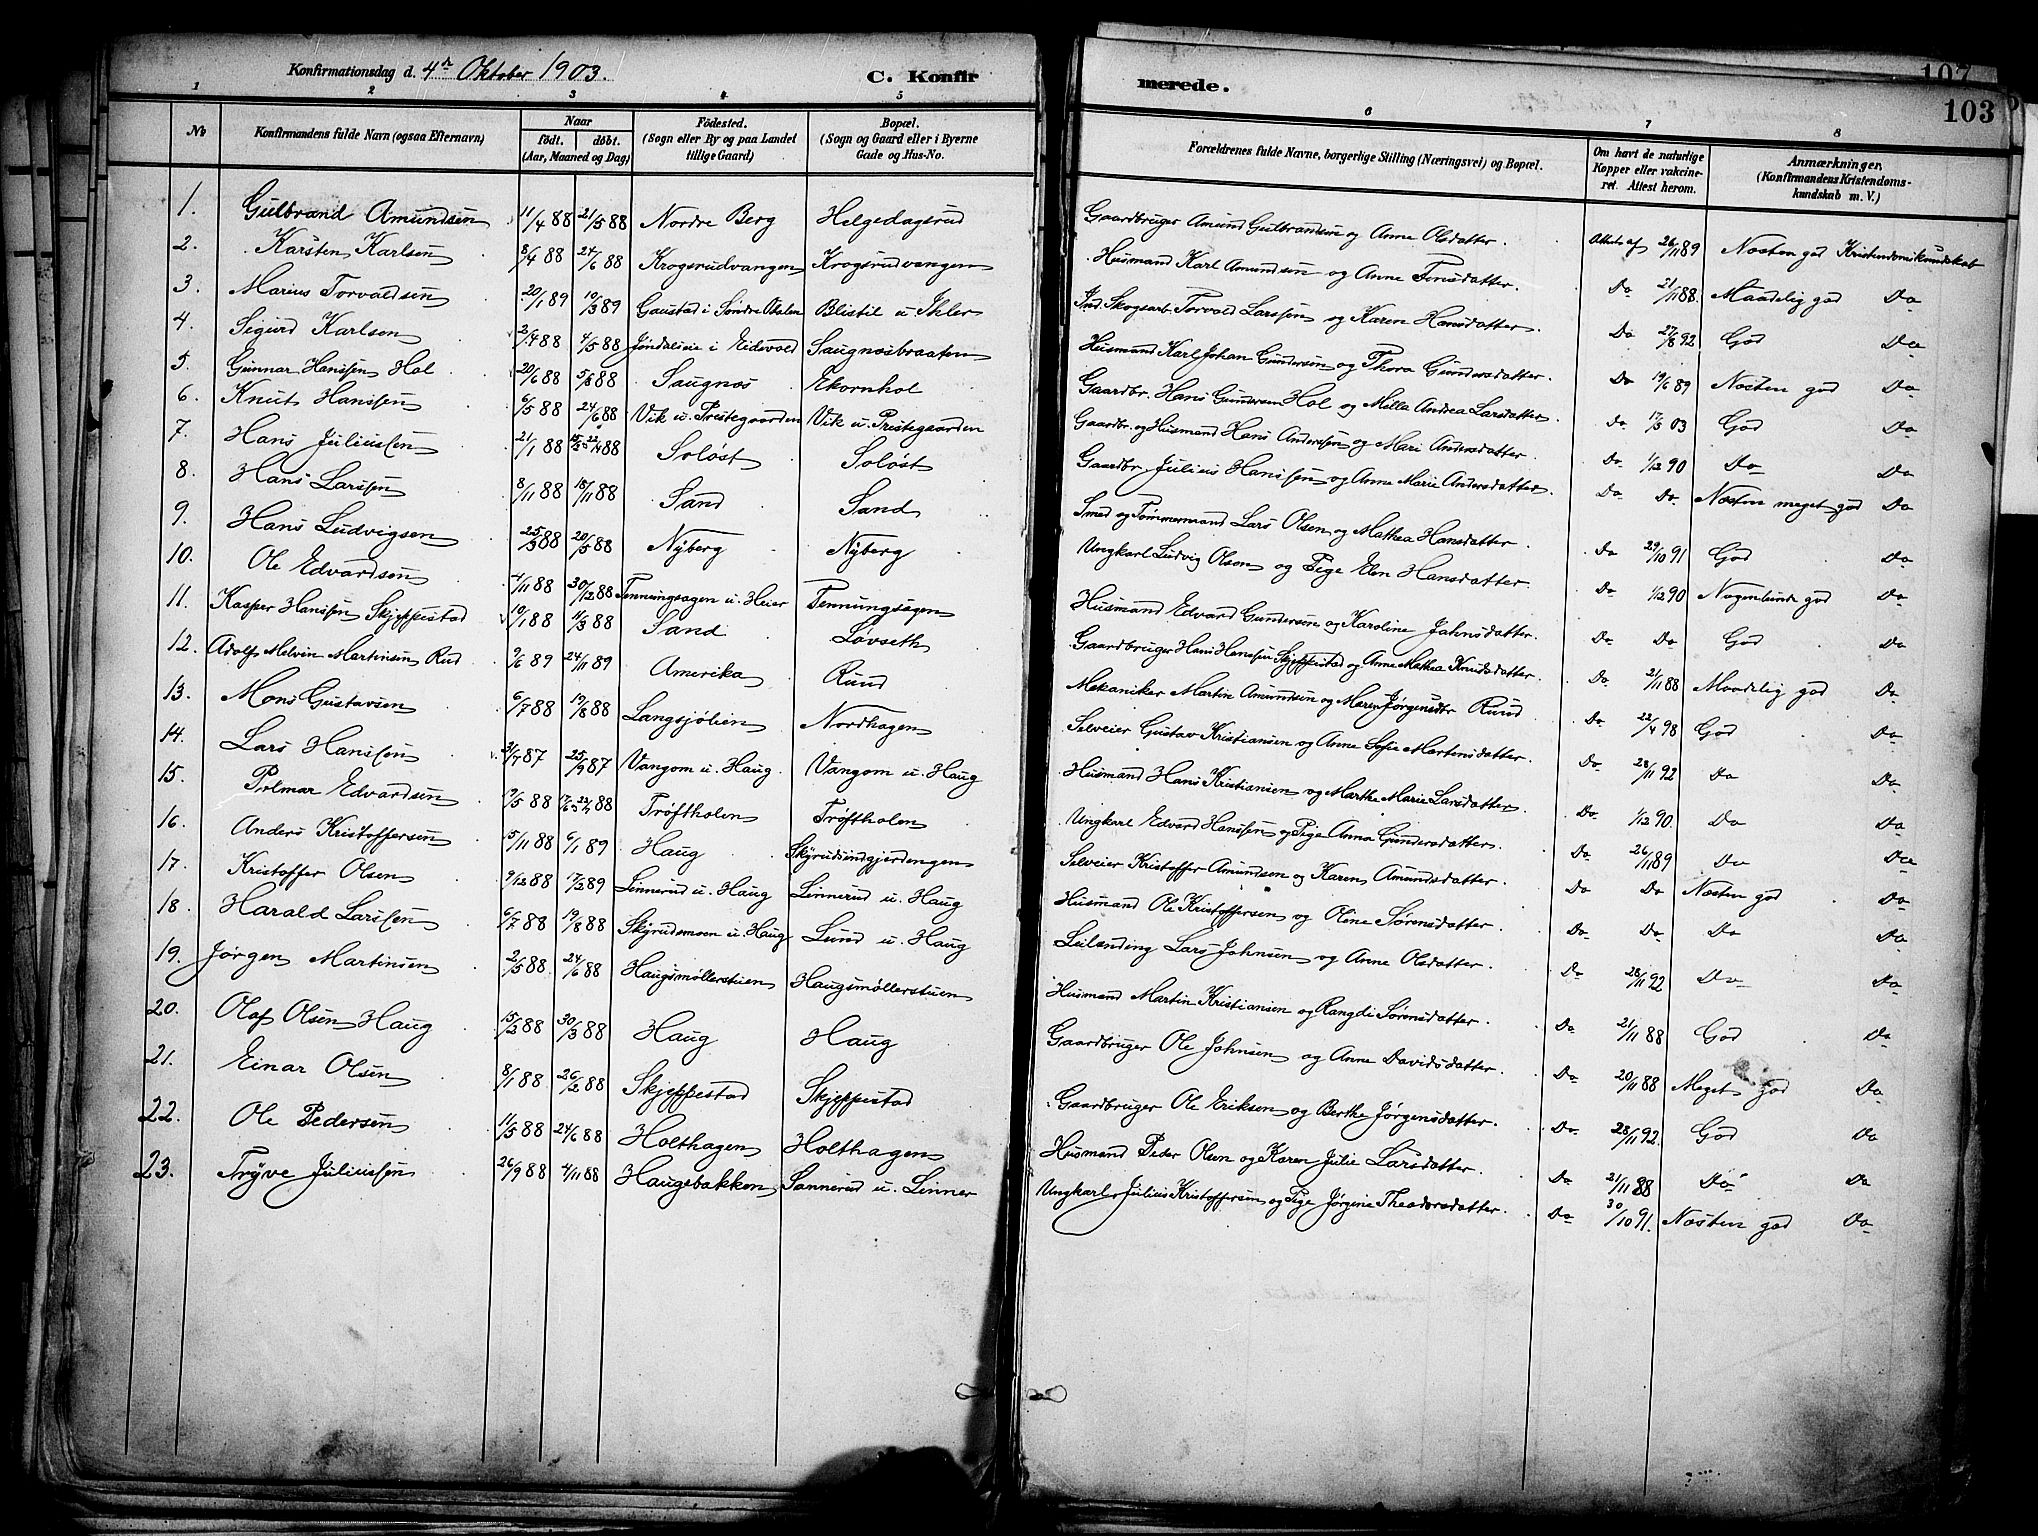 Konfirmationsdag d. 4de Oktober 1903.
C. Konfirmerede.
107
103
1 2 3 4 5 6 7 8
No
Konfirmandens fulde Navn (ogsaa Efternavn)
Naar født. døbt. (Aar, Maaned og Dag)
Fødested. (Sogn eller By og paa Landet tillige Gaard)
Bopæl. (Sogn og Gaard eller i Byerne Gade og Hus-No.
Forældrenes fulde Navne, borgerlige Stilling (Næringsvei) og Bopæl.
Om havt de naturlige Kopper eller vakcineret. Attest herom.
Anmærkninger. (Konfirmandens Kristendomskundskab m. V.)
1. Gulbrand Amundsen 11/4 88 21/5 88 Nordre Berg Helgedagsrud Gaardbruger Amund Gulbrandsen og Anne Olsdatter. Attest af 26/11 89 Næsten god Kristendomskundskab
2. Karsten Karlsen 8/4 88 24/6 88 Krogsrudvangen Krogsrudvangen Husmand Karl Amundsen og Anne Tonsdatter. Do 21/11 88. Maadelig god Do
3. Marius Torvaldsen 20/1 89 10/3 89 Gaustad i Søndre Odalen Blistil u Ihler Ind. Skogsarb. Torvald Larssen og Karen Hansdatter. Do 27/8 92 God Do
4. Sigurd Karlsen 2/4 88 4/5 88 Jøndalseie i Eidsvold Saugnæsbraaten Husmand Karl Johan Gundersen og Thora Gundersdatter. Do 19/6 89 Næsten god Do
5. Gunnar Hanssen Hol 20/6 88 5/8 88 Saugnæs Ekornhol Gaardbr. Hans Gundersen Hol og Milla Andrea Larsdatter. Do 17/3 03 God Do
6. Knut Hanssen 6/5 88 24/6 88 Vik u. Prestegaarden Vik u. Prestegaarden Gaardbr. og Husmand Hans Anderssen og Mari Andersdatter. Do 1/12 90 Do Do
7. Hans Juliussen 21/1 88 22/4 88 Soløst Soløst Gaardbr. Julius Hanssen og Anne Marie Andersdatter. Do Do Næsten meget god Do
8. Hans Larssen 8/11 88 18/11 88 Sand Sand Smed og Tømmermand Lars Olsen og Mathea Hansdatter. Do 29/10 91 God Do
9. Hans Ludvigsen 25/3 88 20/5 88 Nyberg Nyberg Ungkarl Ludvig Olsen og Pige Elen Hansdatter Do 1/12 90 Nogenlunde god Do
10. Ole Edvardsen 4/11 88 30/12 88 Tennungsagen u. Heier Tennungsagen Husmand Edvard Gundersen og Karoline Jahnsdatter. Do Do God Do
11. Kasper Hanssen Skjeppestad 10/1 88 11/3 88 Sand Løvseth Gaardbruger Hans Hanssen Skjeppestad og Anne Mathea Knudsdatter. Do 21/11 88 Maadelig god Do
12. Adolf Melvin Martinsen Rud 9/6 89 24/11 89 Amerika Ruud Mekaniker Martin Amundsen og Maren Jørgensdtr Ruud Do 22/4 98 God Do
13. Mons Gustavsen 6/7 88 19/8 88 Langsjølien Nordhagen Selveier Gustav Kristiansen og Anne Sofie Martensdatter. Do 28/11 92 Do Do
14. Lars Hanssen 31/7 87 25/9 87 Vangom u. Haug Vangom u. Haug Husmand Hans Kristiansen og Marthe Marie Larsdatter. Do 1/12 90. Do Do
15. Edvardsen 88 88 Trøftholen Trøftholen Ungkarl Edvard Hanssen og Pige Anna Gundersdatter. Do 26/11 89 Do Do
16. Anders Kristoffersen 15/11 88 6/1 89 Haug Skyrudsindgjerdengen Selveier Kristoffer Amundsen og Karen Amundsdatter. Do Do Næsten god Do
17. Kristoffer Olsen 9/12 88 17/2 89 Linnerud u. Haug Linnerud u. Haug Husmand Ole Kristoffersen og Oline Sørensdatter. Do Do Do Do
18. Harald Larssen 6/7 88 19/8 88 Skyrudsmoen u. Haug Lund u. Haug Leilænding Lars Johnsen og Anne Olsdatter. Do 28/11 92 Do Do
19. Jørgen Martinsen 2/5 88 24/6 88 Haugsmøllerstuen Haugsmøllerstuen Husmand Martin Kristiansen og Rangdi Sørensdatter. Do 21/11 88 God Do
20. Olaf Olsen Haug 15/2 88 30/3 88 Haug Haug Gaardbruger Ole Johnsen og Anne Davidsdatter. Do 20/11 88 Meget god Do
21. Einar Olsen 8/1 88 26/2 88 Skjeppestad Skjeppestad Gaardbruger Ole Eriksen og Berthe Jørgensdatter. Do 28/11 92. God Do
22. Ole Pedersen 11/5 88 24/6 88 Holthagen Holthagen Husmand Peder Olsen og Karen Julie Larsdatter. Do 21/11 88 Do Do
23. Tryve Juliussen 26/9 88 4/11 88 Haugebakken Sannerud u. Linner Ungkarl Julius Kristoffersen og Pige Jørgine Theodorsdatter. Do 30/10 91. Næsten god Do